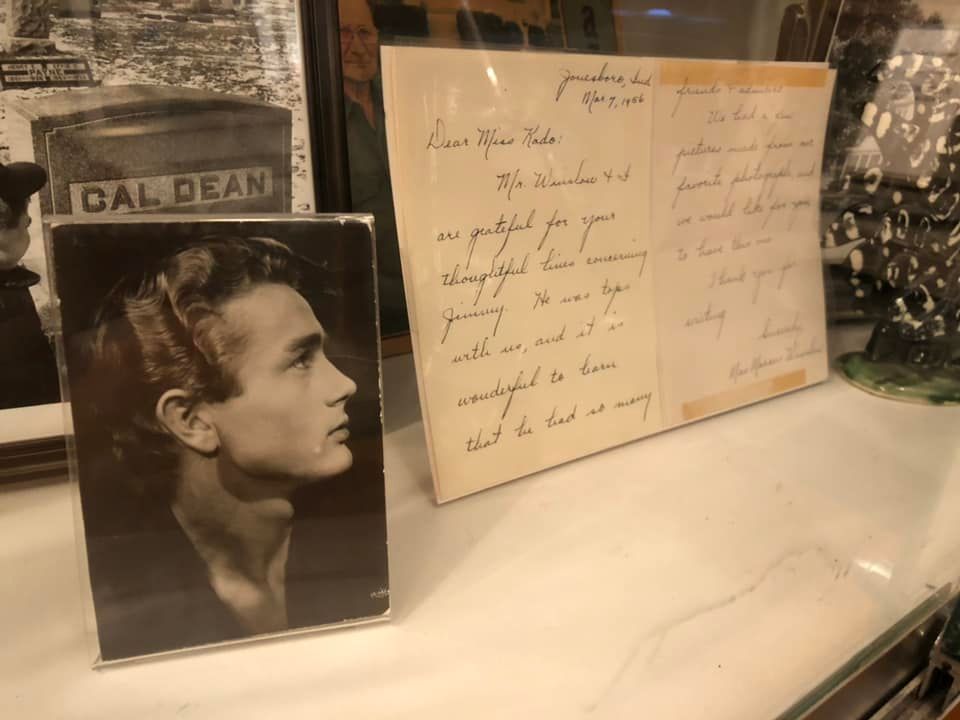 PAYNE
CAL DEAN
Jonesboro, Ind
Mar 7, 1956
Dear Miss Kado:
Mr. Winslow & I
are grateful for your
thoughtful lines concerning
Jimmy. He was tops
with us, and it is
wonderful to learn
that he had so many
friends & admirers.
We had a few
pictures made from our
favorite photograph, and
we would like for you
to have this one
Thank you for
writing
Sincerely
Mrs Marcus Winslow